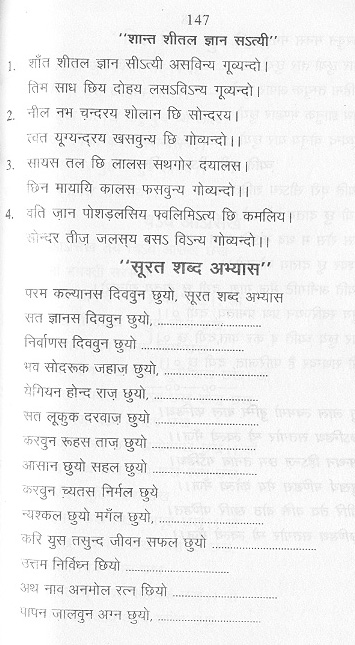 147
"शान्त शीतल ज्ञान सऽत्यी"
1. शाँत शीतल ज्ञान सीऽत्यी असविन्द गूव्यन्दो।
तिम साध छिय दोहय लसऽविऽन्य गूव्यन्दो।।
2. नील नभ चन्दरय शोलान छि सोन्दरय।
त्वत यूग्यन्द्रय खसवुन्य छि गोव्यन्दो।।
3. सायस तल छि लालस सथगोर दयालस।
छिन मायायि कालस फसवुन्य गूव्यन्दो।।
4. वति ज़ान पोशडलसिय पवलिमिऽत्य छि कमलिय।
सोन्दर तीज़ जलसय बसऽ विऽन्य गूव्यन्दो।।
"सूरत शब्द अभ्यास"
परम कल्यानस दिववुन छुयो, सूरत शब्द अभ्यास
सत ज्ञानस दिववुन छुयो, ..............................
निर्वाणस दिववुन छुयो ..............................
भव सोदरूक जहाज़ छुयो ..............................
येगियन होन्द राज़ छुयो, ..............................
सत लूकुक दरवाज़ छुयो ..............................
करवुन रूहस ताज़ छुयो ..............................
आसान छुयो सहल छुयो ..............................
करवुन च्यतस निर्मल छुये
न्यश्कल छुयो मगँल छुयो, ..............................
करि युस तसुन्द जीवन सफल छुयो ..............................
उत्तम निर्विघ्न छियो ..............................
अथ नाव अनमोल रत्न छियो ..............................
पापन जालवुन अग्न छुयो, ..............................